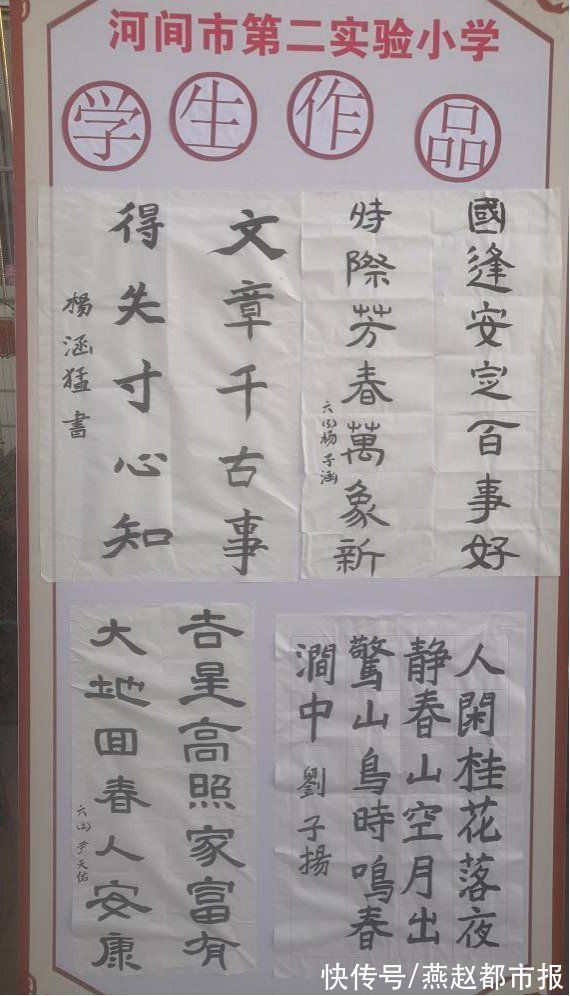 河间市第二实验小学
学生作品
國逢安定百事好
時際芳春萬象新
六(5)杨子涵
文章千古事
得失寸心知
楊涵猛書
人閑桂花落夜
静春山空月出
驚山鳥時鳴春
澗中 劉子揚
吉星高照家富有
大地回春人安康
六(四)尹天佑
快传号/燕赵都市报